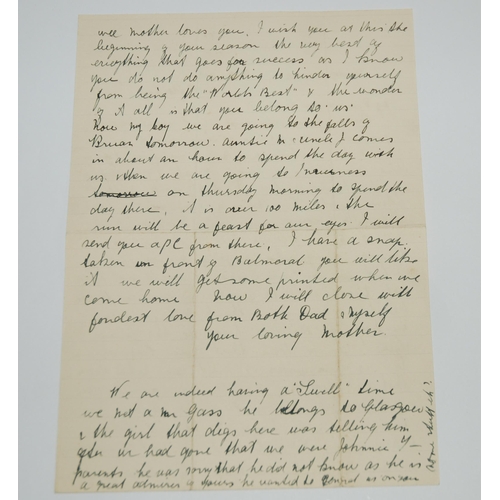 well mother loves you. I wish you at this the
beginning of your season the very best of
everything that goes for success as I know
you do not do anything to hinder yourself
from being the "Worlds Best" & the wonder
of it all is that you belong to "us"
Now my boy we are going to the falls of
Bruar tomorrow. Auntie M & uncle J comes
in about an hour to spend the day with
us then we are going to Inverness
tomorrow on Thursday morning to spend the
day there, it is over 100 miles & the
run will be a feast for our eyes. I will
send you a P.C from there, I have a snap
taken in front of Balmoral you will like
it we will get some printed when we
come home Now I will close with
fondest love from Both Dad & myself
your loving Mother.
We are indeed having a "Swell" time
we met a Mr Gass he belongs to Glasgow
& the girl that digs here was telling him
after we had gone that we were Johnnie
parents he was sorry that he did not know as he is
a great admirer of yours he wanted to
some stuff eh?